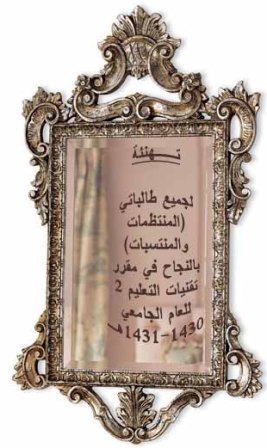 تـــهنئة
لجميع طالباتي
(المنتظمات
والمنتسبات)
بالنجاح في مقرر
تقنيات التعليم 2
للعام الجامعي
1430-1431هـ